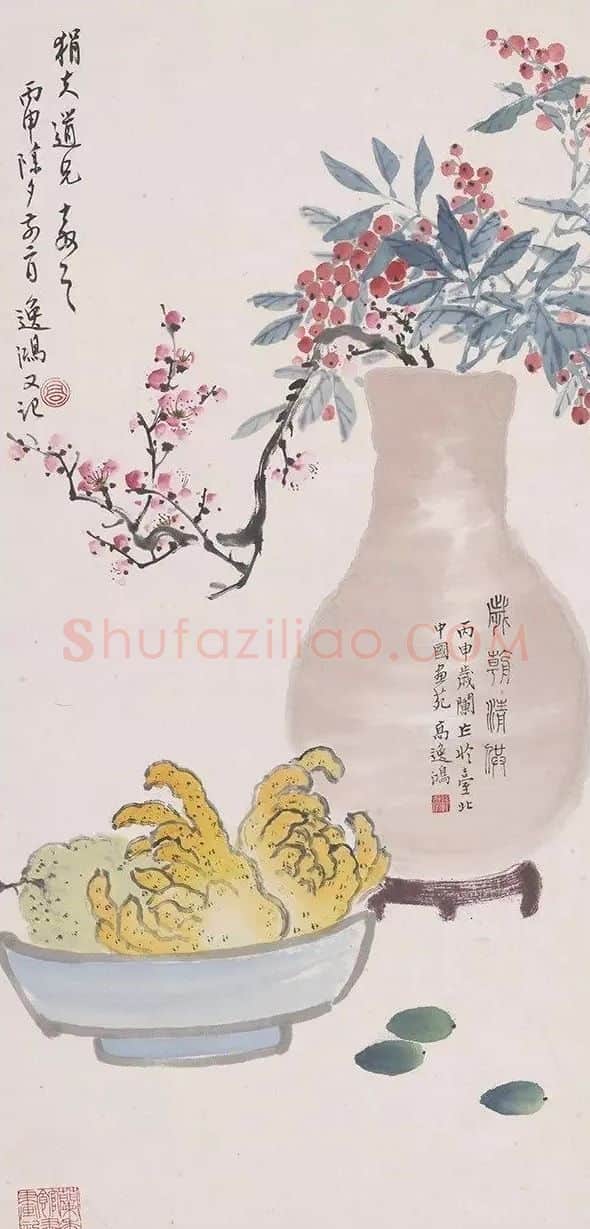 狷夫道兄
丙申除夕前一日逸鴻又記
歲朝清供
丙申歲闌作於臺北
中國畫苑高逸鴻
Shufaziliao.COM